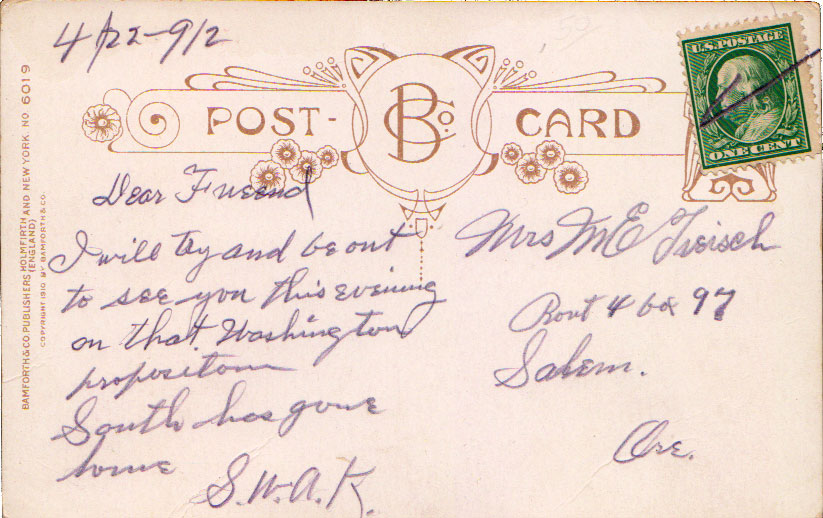 4/22-912
U.S. POSTAGE
ONE CENT
POST-
BCo.
CARD
BAMFORTH & CO. PUBLISHERS HOLMFIRTH AND NEW YORK No. 6019
(ENGLAND)
COPYRIGHT 1910 BY BAMFORTH & CO.
Dear Frieend
I will try and be out
to see you this evening
on that Washington
propositon
South has gone
home
S.W.A.K.
Mrs M E
Rout 4 box 97
Salem.
Ore.